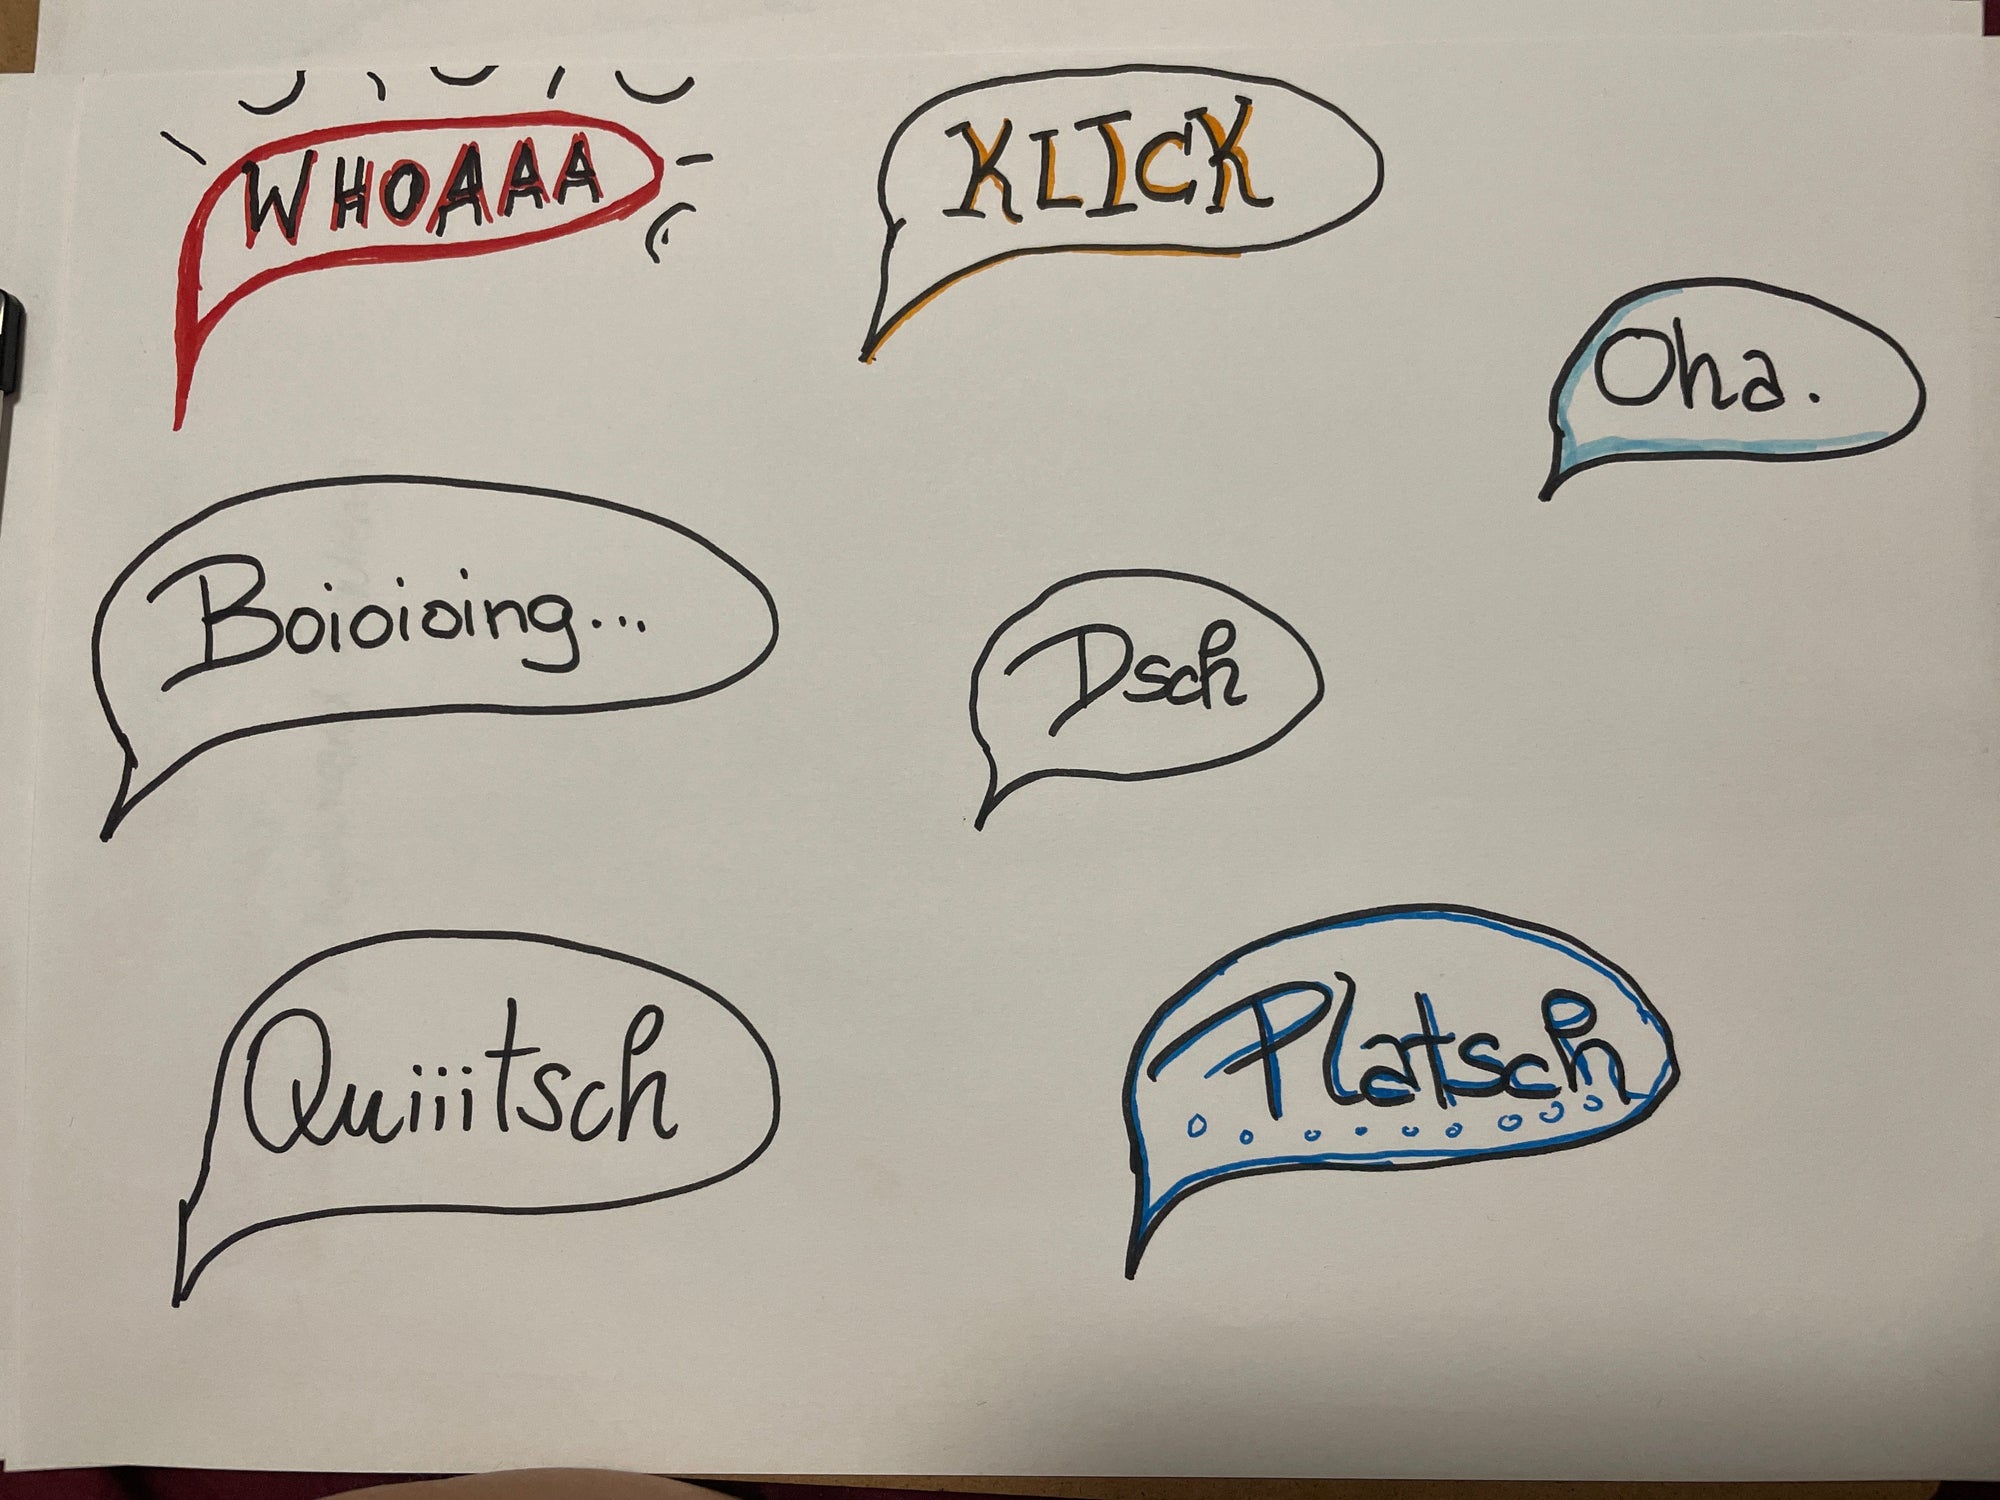 WHOAAA
KLICK
Oha.
Boioioing...
Dsch
Quiiitsch
Platsch